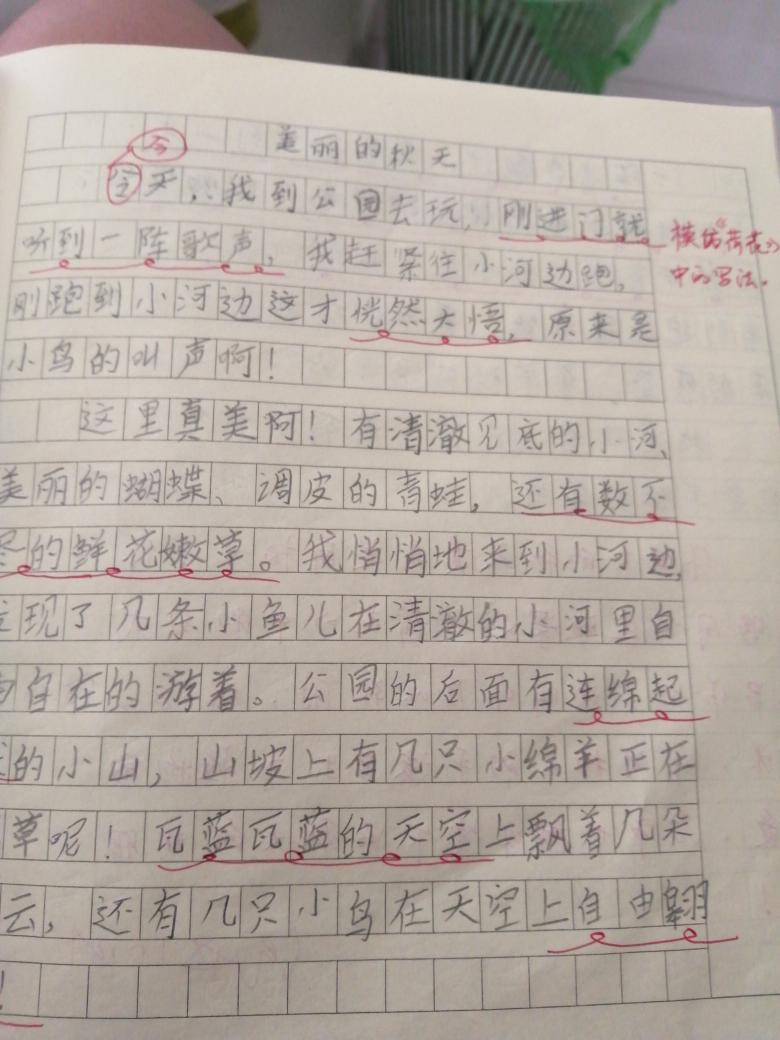 美丽的秋天
今
今天,我到公园去玩,刚进门就
听到一阵歌声,我赶紧往小河边跑,
模仿《荷花》
中的写法。
刚跑到小河边这才恍然大悟,原来是
小鸟的叫声啊!
这里真美啊!有清澈见底的小河、
美丽的蝴蝶、调皮的青蛙,还有数不
尽的鲜花嫩草。我悄悄地来到小河边,
现了几条小鱼儿在清澈的小河里自
由自在的游着。公园的后面有连绵起
的小山,山坡上有几只小绵羊正在
草呢!瓦蓝瓦蓝的天空上飘着几朵
云,还有几只小鸟在天空上自由翱
!